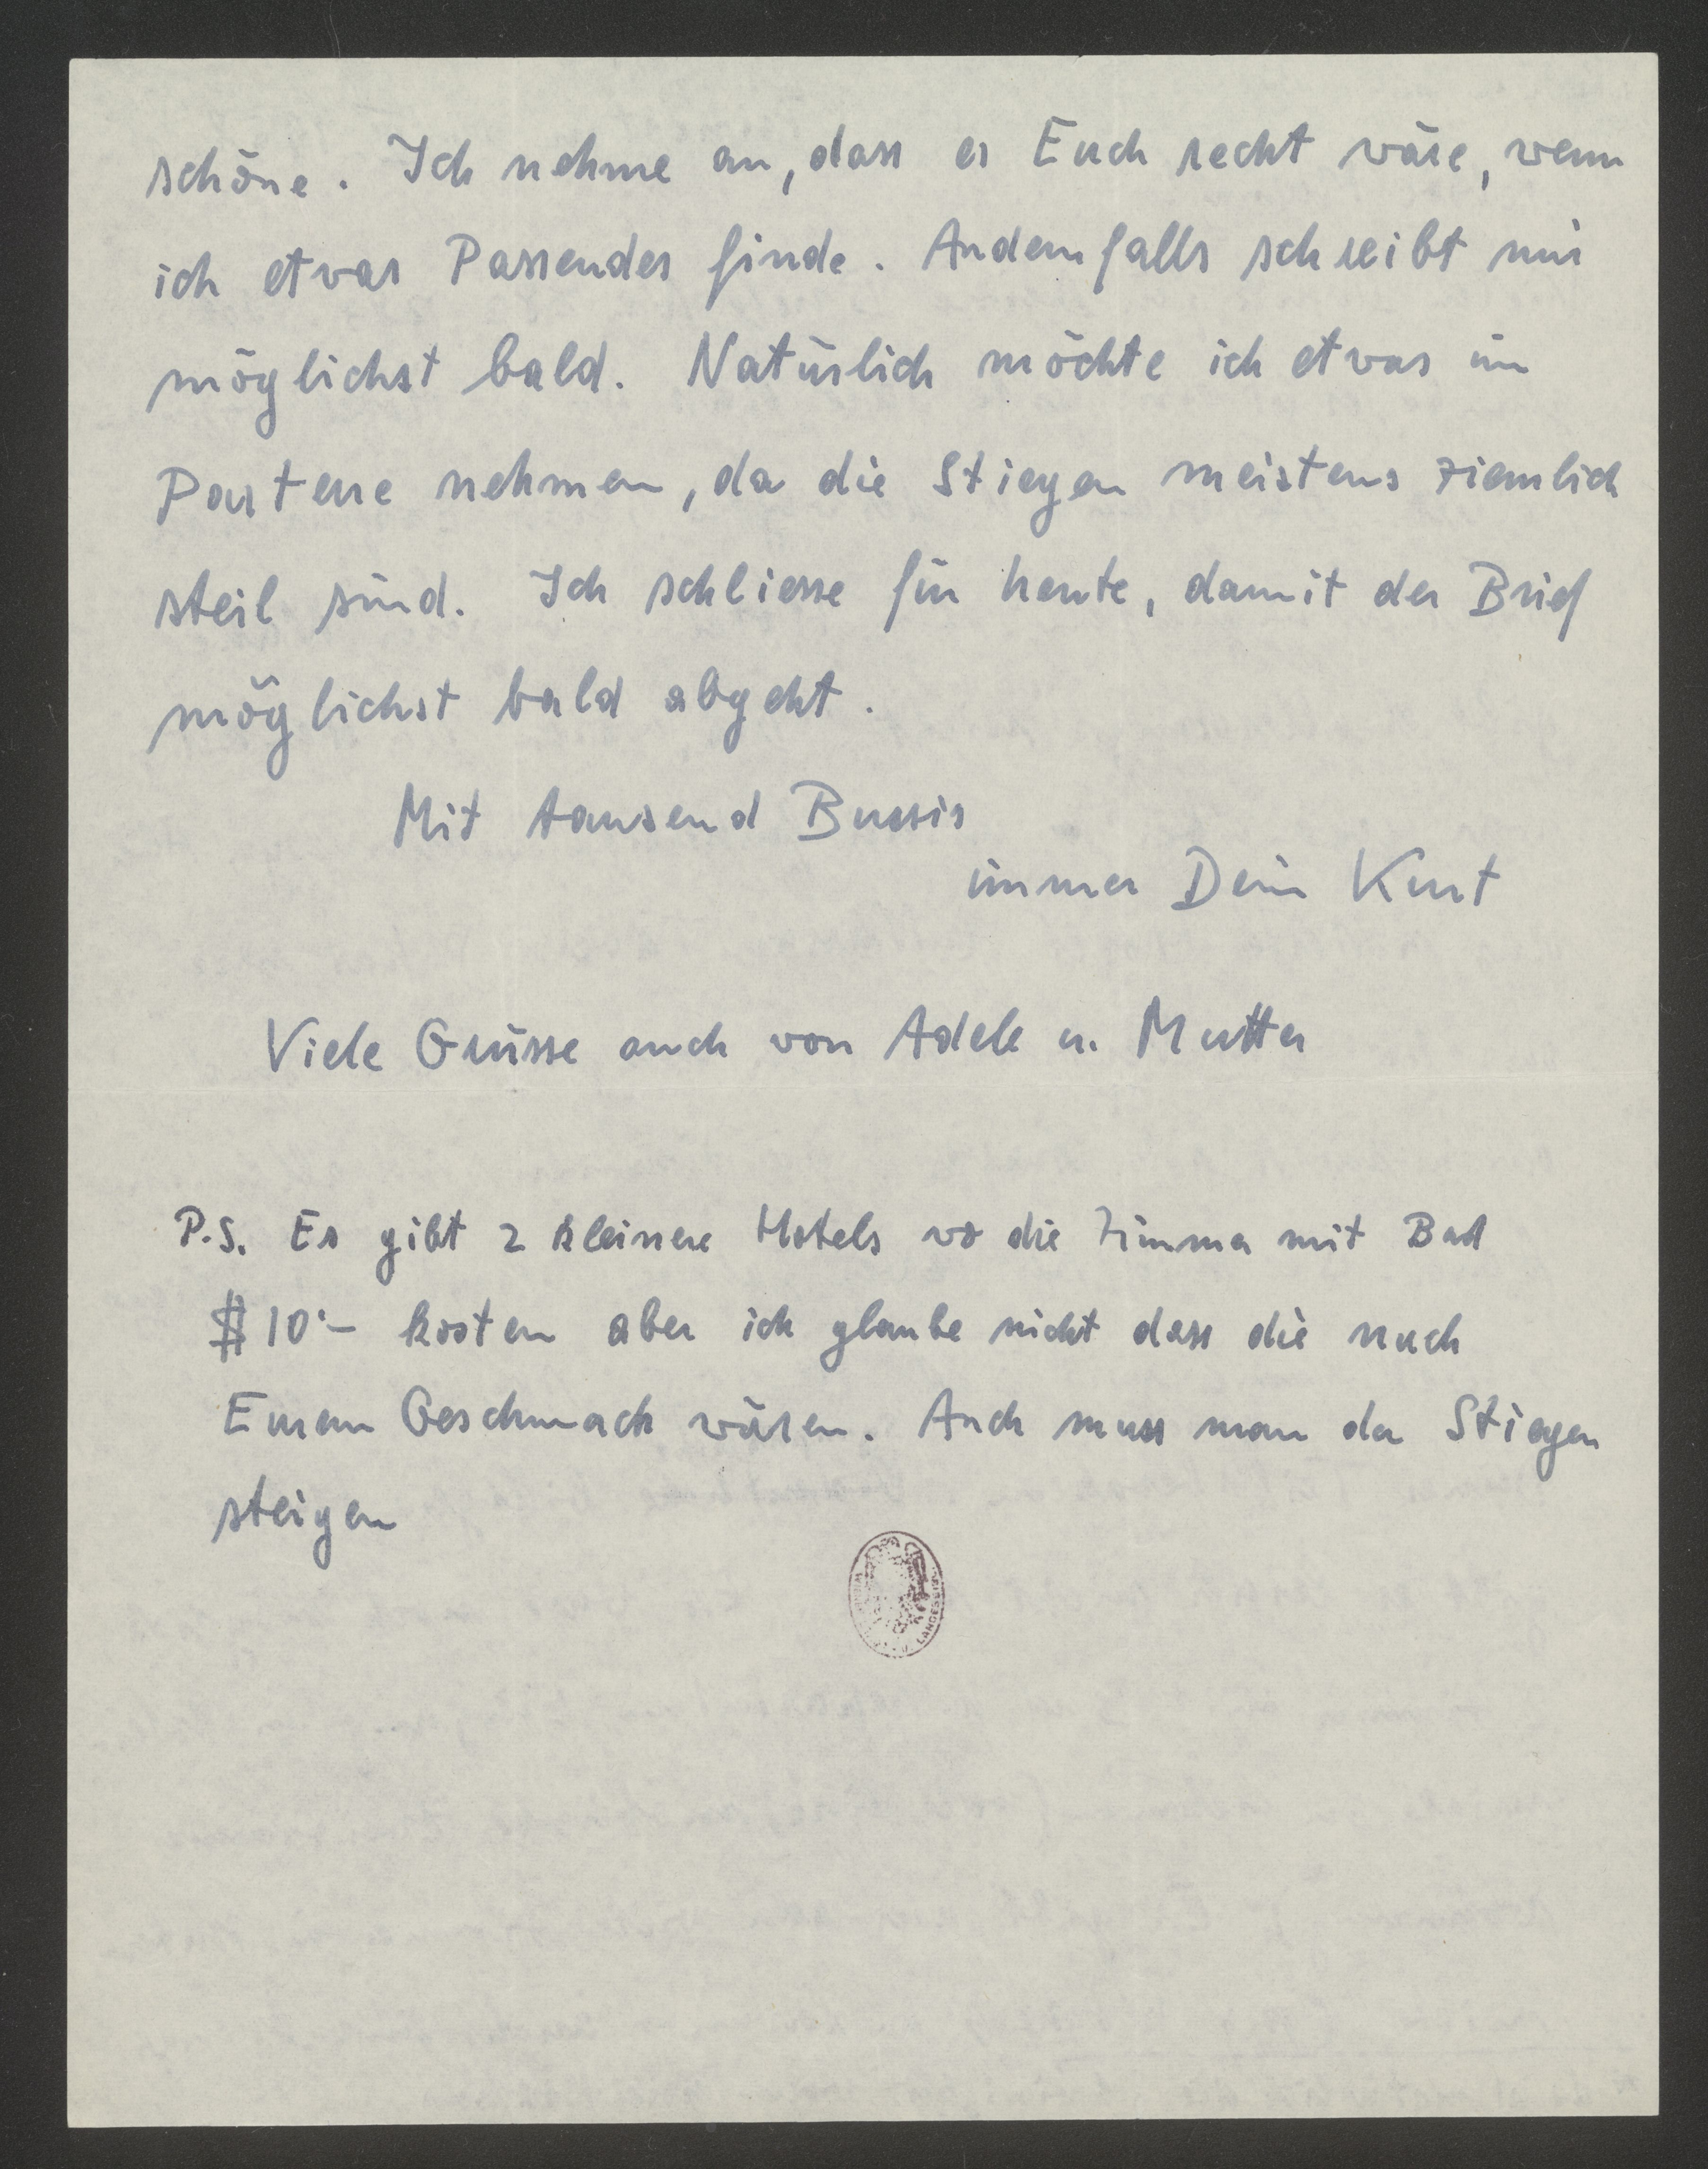 schöne. Ich nehme an, dass es Euch recht wäre, wenn
ich etwas Passendes finde. Andernfalls schreibt mir
möglichst bald. Natürlich möchte ich etwas im
Parterre nehmen, da die Stiegen meistens ziemlich
steil sind. Ich schliesse für heute, damit der Brief
möglichst bald abgeht.
Mit tausend Bussis
immer Dein Kurt
Viele Grüsse auch von Adele u. Mutter
P.S. Es gibt 2 kleinere Hotels wo die Zimmer mit Bad
$10·– kosten aber ich glaube nicht dass die nach
Eurem Geschmack wären. Auch muss man da Stiegen
steigen